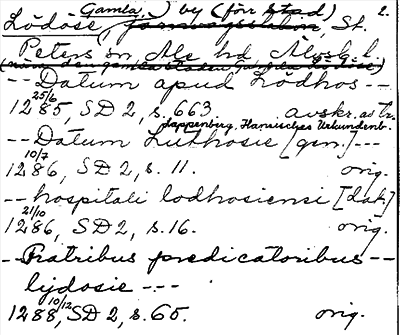 Gamla,) by (för stad) 2.
Lödöse, St.
Peters sn Ale hd Älvsb. l.
-- Datum apud Lödhos --
25/6
1285, SD 2, s. 663 avskr. av tr.
Lappenberg, Hansisches Urkundenb.
-- Datum Luthosie [gen.] ---
10/7
1286, SD 2, s. 11. orig.
-- hospitali lodhosiensi [dat.]
21/10
1286, SD 2, s. 16. orig.
-- Fratribus predicatoribus --
lydosie ---
10/12
1288, SD 2, s. 65. orig.